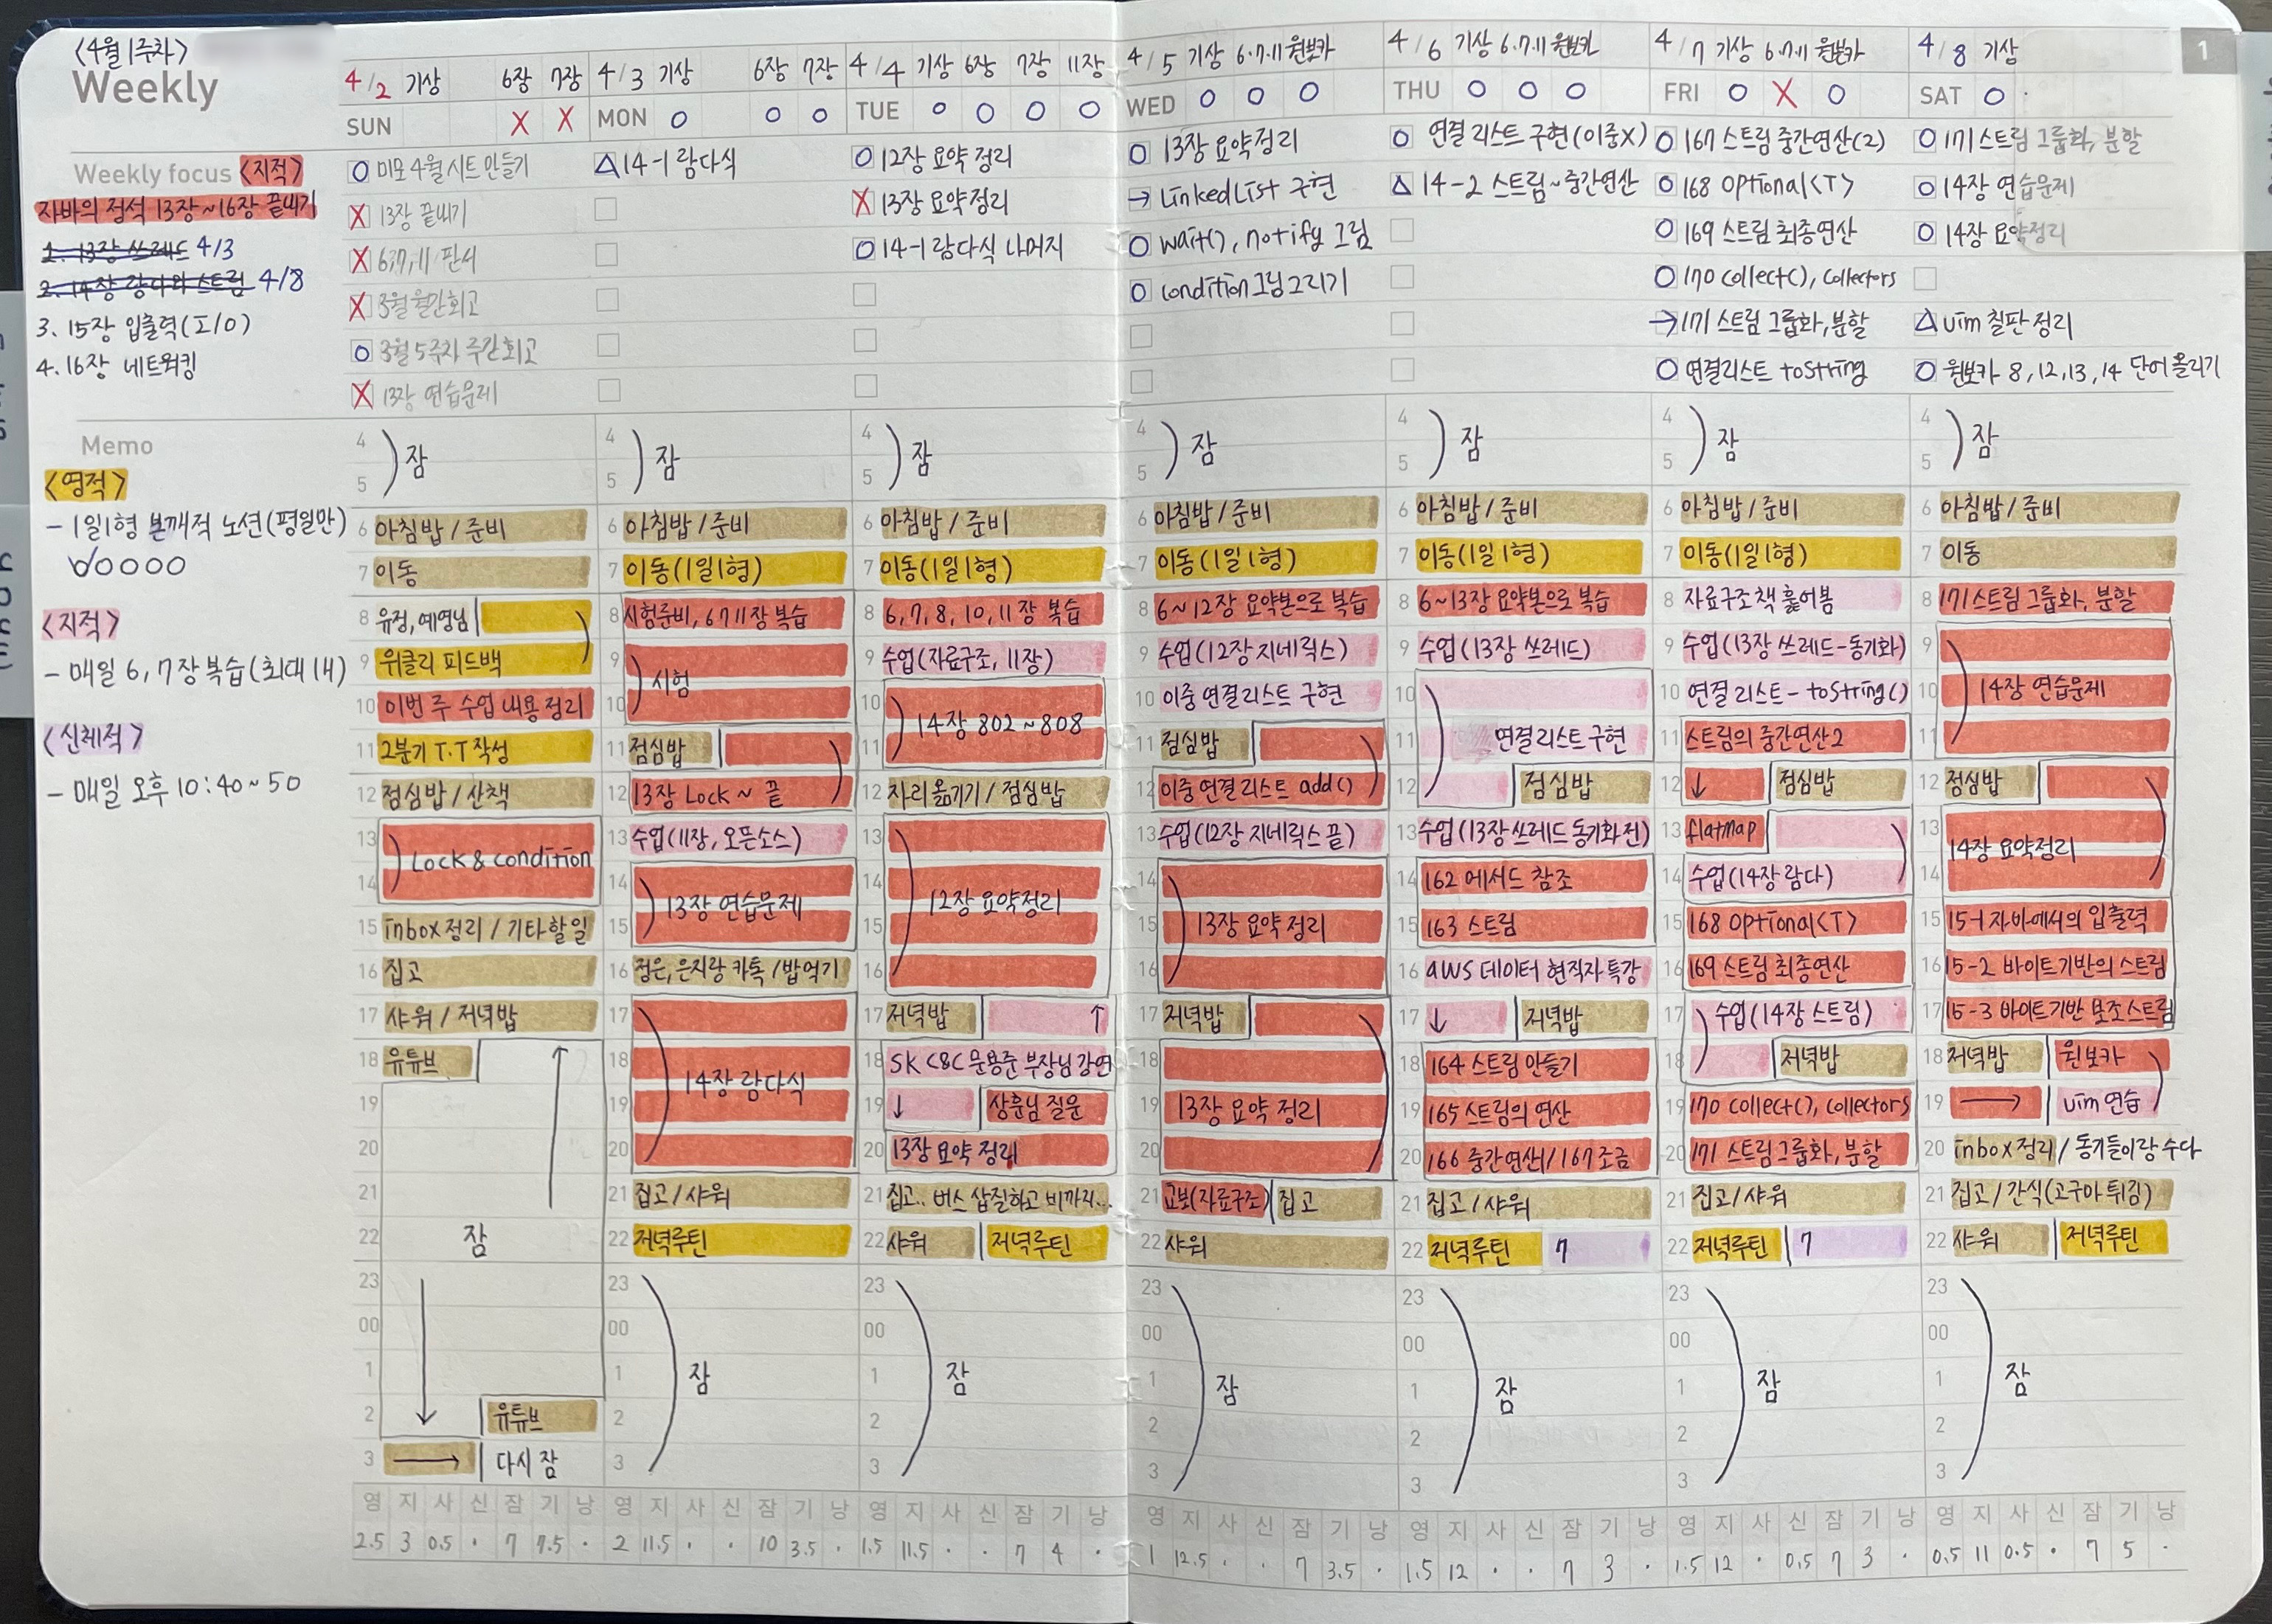 <4월 1주차>
Weekly
Weekly focus <지적>
자바의 정석 13장~16장 끝내기
1. 13장 쓰레드 4/3
2. 14장 람다와 스트림 4/8
3. 15장 입출력(I/O)
4. 16장 네트워킹
Memo
<영적>
- 1일1형 본깨적 노션(평일만)
<지적>
- 매일 6, 7장 복습(최대 1H)
<신체적>
- 매일 오후 10:40~50
4/2 기상 6장 7장
SUN X X
O 미모 4월 시트 만들기
X 13장 끝내기
X 6,7,11 판서
X 3월 월간회고
O 3월 5주차 주간회고
X 13장 연습문제
4
5 잠
6 아침밥 / 준비
7 이동
8 유정, 예영님
9 위클리 피드백
10 이번 주 수업 내용 정리
11 2분기 T.T 작성
12 점심밥 / 산책
13 Lock & condition
14
15 inbox 정리 / 기타할일
16 집고
17 샤워 / 저녁밥
18 유튜브
19
20
21
22 잠
23
00
1
2 유튜브
3 → 다시 잠
영 지 사 신 잠 기 낭
2.5 3 0.5 · 7 7.5 ·
4/3 기상 6장 7장
MON O O O
△ 14-1 람다식
4
5 잠
6 아침밥 / 준비
7 이동(1일1형)
8 시험준비, 6 7 11장 복습
9 시험
10
11 점심밥
12 13장 Lock ~ 끝
13 수업(11장, 오픈소스)
14 13장 연습문제
15
16 정은, 은지랑 카톡 / 밥먹기
17
18 14장 람다식
19
20
21 집고 / 샤워
22 저녁루틴
23
00
1 잠
2
3
영 지 사 신 잠 기 낭
2 11.5 · · 10 3.5 ·
4/4 기상 6장 7장 11장
TUE O O O O
O 12장 요약 정리
X 13장 요약정리
O 14-1 람다식 나머지
4
5 잠
6 아침밥 / 준비
7 이동(1일1형)
8 6, 7, 8, 10, 11장 복습
9 수업(자료구조, 11장)
10 14장 802~808
11
12 자리 옮기기 / 점심밥
13
14 12장 요약정리
15
16
17 저녁밥 ↑
18 SK C&C 문용준 부장님 강연
19 ↓ 상훈님 질문
20 13장 요약 정리
21 집고.. 버스 삽질하고 비까지...
22 샤워 저녁루틴
23
00
1 잠
2
3
영 지 사 신 잠 기 낭
1.5 11.5 · · 7 4 ·
4/5 기상 6.7.11 원보카
WED O O O
O 13장 요약정리
→ LinkedList 구현
O wait(), notify 그림
O condition 그림 그리기
4
5 잠
6 아침밥 / 준비
7 이동(1일1형)
8 6~12장 요약본으로 복습
9 수업(12장 지네릭스)
10 이중 연결리스트 구현
11 점심밥
12 이중 연결리스트 add()
13 수업(12장 지네릭스 끝)
14
15 13장 요약 정리
16
17 저녁밥
18
19 13장 요약 정리
20
21 교보(자료구조) 집고
22 샤워
23
00
1 잠
2
3
영 지 사 신 잠 기 낭
1 12.5 · · 7 3.5 ·
4/6 기상 6.7.11 원보카
THU O O O
O 연결 리스트 구현(이중X)
△ 14-2 스트림~중간연산
4
5 잠
6 아침밥 / 준비
7 이동(1일1형)
8 6~13장 요약본으로 복습
9 수업(13장 쓰레드)
10
11 연결리스트 구현
12 점심밥
13 수업(13장 쓰레드 동기화 전)
14 162 메서드 참조
15 163 스트림
16 AWS 데이터 현직자 특강
17 ↓ 저녁밥
18 164 스트림 만들기
19 165 스트림의 연산
20 166 중간연산1 / 167 조금
21 집고 / 샤워
22 저녁루틴 7
23
00
1 잠
2
3
영 지 사 신 잠 기 낭
1.5 12 · · 7 3 ·
4/7 기상 6.7.11 원보카
FRI O X O
O 167 스트림 중간연산(2)
O 168 Optional<T>
O 169 스트림 최종연산
O 170 collect(), collectors
→ 171 스트림 그룹화, 분할
O 연결리스트 toString
4
5 잠
6 아침밥 / 준비
7 이동(1일1형)
8 자료구조 책 훑어봄
9 수업(13장 쓰레드-동기화)
10 연결 리스트 - toString()
11 스트림의 중간연산2
12 ↓ 점심밥
13 flatmap
14 수업(14장 람다)
15 168 Optional<T>
16 169 스트림 최종연산
17 수업(14장 스트림)
18 저녁밥
19 170 collect(), collectors
20 171 스트림 그룹화, 분할
21 집고 / 샤워
22 저녁루틴 7
23
00
1 잠
2
3
영 지 사 신 잠 기 낭
1.5 12 · 0.5 7 3 ·
4/8 기상
SAT O
1
O 171 스트림 그룹화, 분할
O 14장 연습문제
O 14장 요약정리
△ vim 칠판 정리
O 원보카 8, 12, 13, 14 단어 올리기
4
5 잠
6 아침밥 / 준비
7 이동
8 171 스트림 그룹화, 분할
9
10 14장 연습문제
11
12 점심밥
13 14장 요약정리
14
15 15-1 자바에서의 입출력
16 15-2 바이트기반의 스트림
17 15-3 바이트기반 보조스트림
18 저녁밥 원보카
19 → vim 연습
20 inbox 정리 / 동기들이랑 수다
21 집고 / 간식(고구마 튀김)
22 샤워 저녁루틴
23
00
1 잠
2
3
영 지 사 신 잠 기 낭
0.5 11 0.5 · 7 5 ·